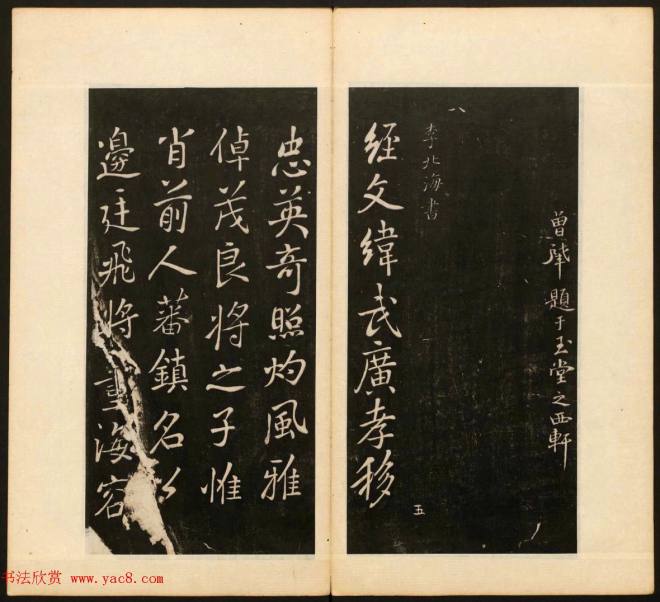 曾肇題于玉堂之西軒
八
李北海書
經文緯武廣孝移
五
忠英奇照灼風雅
倬茂良將之子惟
肖前人蕃鎮名公
邊廷飛將海容
书法欣赏 www.yac8.com